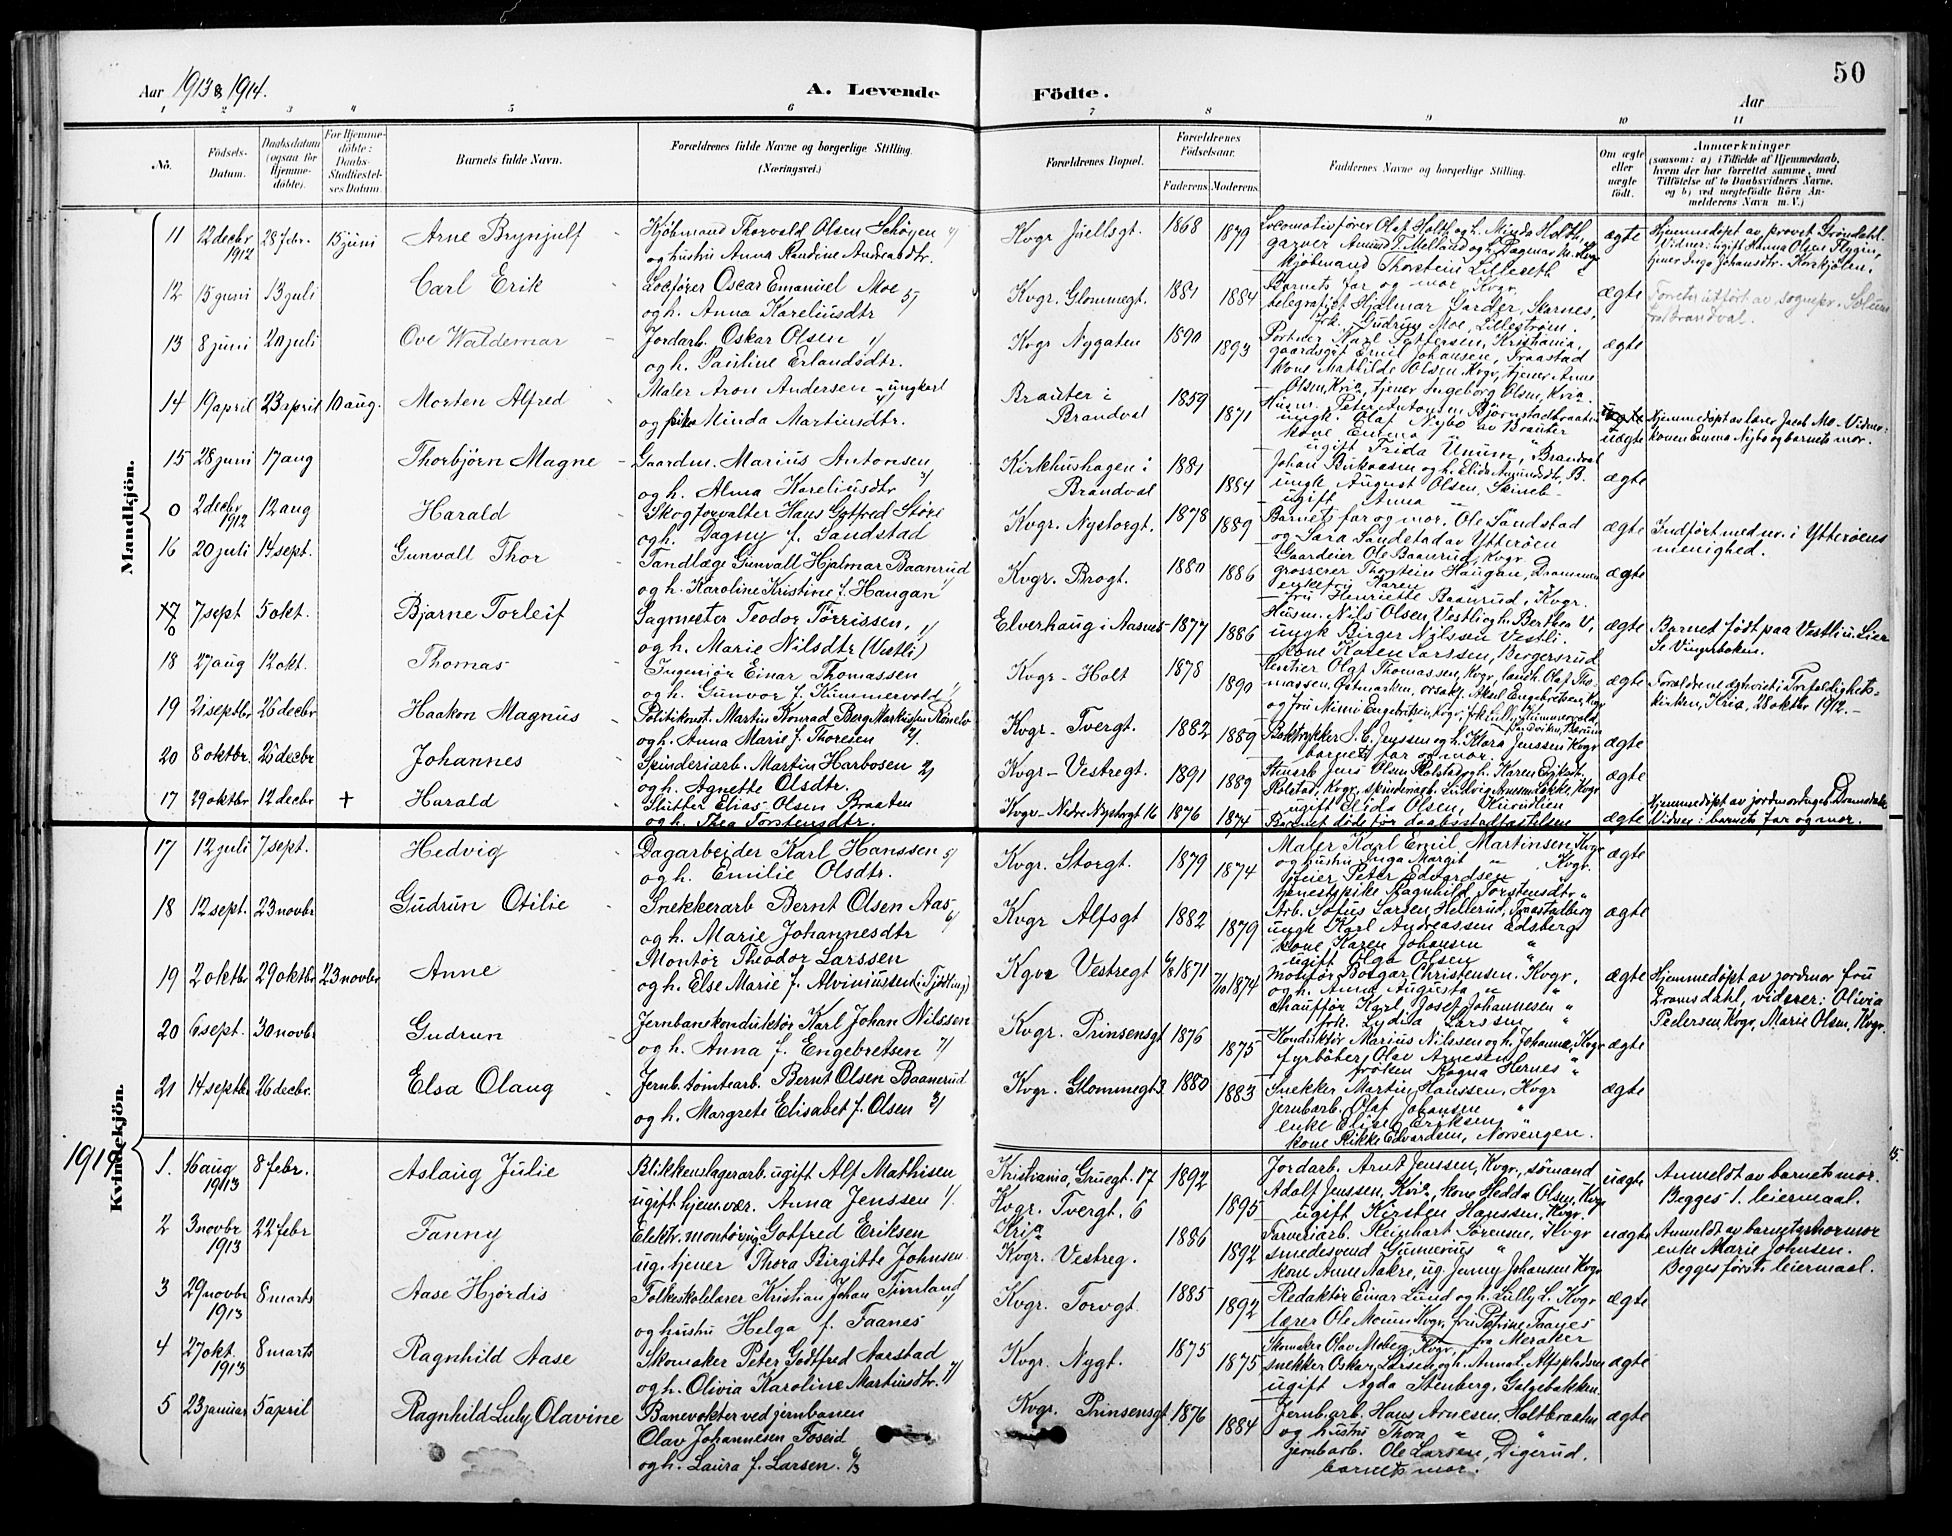 50
Aar 1913 & 1914. A. Levende Födte. Aar
1 2 3 4 5 6 7 8 9 10 11
No. Födsels-Datum. Daabsdatum (ogsaa for Hjemme-döbte). For Hjemme-döbte: Daabs-Stadfæstel-ses Datum. Barnets fulde Navn. Forældrenes fulde Navne og borgerlige Stilling. (Næringsvei.) Forældrenes Bopæl. Forældrenes Födselsaar. Faderens. Moderens. Faddernes Navne og borgerlige Stilling. Om ægte eller uægte födt. Anmærkninger (saasom: a) i Tilfælde af Hjemmedaab, hvem der har forrettet samme, med Tilföielse af to Daabsvidners Navne, og b) ved uægtefödte Börn An-melderens Navn m. V.)
Mandkjön.
11 12 decbr 1912 28 febr. 15 juni Arne Brynjulf Kjøbmand Thorvald Olsen Schøyen
og hustru Anna Randine Andreasdtr. Kvgr Juellsgt. 1868 1879 Locomotivfører Olaf Holth og h. Minda Holth,
garver Amund T. Melland og h. Dagmar M. Kvgr
kjøbmand Thorstein Lilleseth ægte Hjemmedøpt av provst Grøndahl.
Vidner: ugift Hanna Olsen Flygin,
tjener Inga Johansdtr. Korskjølen.
12 15 juni 13 juli Carl Erik Locfører Oscar Emanuel Moe 5/
og h. Anna Kareliusdtr Kvgr. Glommegt. 1881 1884 Barnets far og mor. Kvgr.
telegrafist Hjalmar Garder, Skarnes,
frk. Gudrun Moe, Lillestrøm. ægte Forret. utført av sognepr. Solum
fra Brandval.
13 8 juni 20 juli Ove Waldemar Jordarb. Oskar Olsen
og h. Pauline Erlandsdtr. Kvgr Nygaten 1890 1893 Portner Karl Pettersen, Kristiania,
gaardsgut Emil Johansen, Fraastad
kone Mathilde Olsen Kvgr, tjener Anne
Olsen, Kria, tjener Ingeborg Olsen, Kria. ægte
14 19 april 23 april 10 aug. Morten Alfred Maler Aron Andersen - ungkarl
og pike Minda Martinsdtr. Brauter i
Brandval 1859 1871 Husm. Peter Antonsen Bjørnstadbraaten
ungk. Olaf Nybo av Brauter
kone Emma "
ugift Frida Unum, Brandval uægte Hjemmedøpt av lærer Jacob Mo - Vidner:
konen Emma Nybo og barnets mor.
15 28 juni 17 aug Thorbjørn Magne Gaardm. Marius Antonsen
og h. Alma Kareliusdtr Kirkhushagen i
Brandval 1881 1884 Johan Birkaasen og h. Elida Amundsdtr, B.
ungk August Olsen, Skineb-
ugift Anna " ægte
0 2 decbr 1912 12 aug Harald Skogforvalter Hans Gotfred Støre
og h. Dagny f. Sandstad Kvgr. Nystorgt. 1878 1889 Barnets far og mor. Ole Sandstad
og Sara Sandstad av Ytterøen ægte Indført med no. i Ytterøens
menighed.
16 20 juli 14 sept. Gunvall Thor Tandlæge Gunvall Hjalmar Baanrud
og h. Karoline Kristine f. Haugan Kvgr. Brogt. 1880 1886 Gaardeier Ole Baanrud, Kvgr.
grosserer Thorstein Haugan, Drammen
enkefru Karen "
fru Henriette Baanrud, Kvgr. ægte
17 0 7 sept 5 okt. Bjarne Torleif Sagmester Teodor Tørrissen,
og h. Marie Nilsdtr (Vestli) Elverhaug i Aasnes 1877 1886 Husm. Nils Olsen, Vestli og h. Berthea V,
ungk Birger Nilssen Vestli.
kone Karen Larssen, Bergersrud ægte Barnet født paa Vestli i Eier
Se Vingerboken.
18 27 aug 12 okt. Thomas Ingeniør Einar Thomassen
og h. Gunvor f. Kimmervold Kvgr - Holt 1878 1890 Rentier Olaf Thomassen, Kvgr, landh. Olaf Tho-
massen, Østmarken, orsakf. Aksel Engebretsen, Kvgr
og fru Mimi Engebretsen, Kvgr, ægte Forældrene egteviet i Trefoldighets-
kirken, Kria, 28 oktbr 1912.
19 21 septbr 26 decbr Haakon Magnus Politikonst. Martin Konrad Berg Markussen Rønelv
og h. Anna Marie f. Thoresen 2/ Kvgr - Tvergt. 1882 1889 Boktrykker J. C. Jenssen og h. Klara Jenssen Kvgr
barnets far og mor. ægte
20 8 oktbr. 26 decbr Johannes Spinderiarb. Martin Harbosen 2/
og h. Agnette Olsdtr. Kvgr - Vestregt. 1891 1889 Stenarb. Jens Olsen Rolstad og h. Karen Eriksdt.
Rolstad, Kvgr, spindemag. Ludvig Arnesen Løkke, Kvgr
ugift Elida Olsen, ægte
17 29 oktbr 12 decbr + Harald Sliper Elias Olsen Braaten
og h. Thea Torstensdtr. Kvgr - Nedre Nystorgt 16 1876 1874 Barnet døde før daabsstadfæstelsen ægte Hjemmedøpt av jordmor Ingeb. Dramsdahl
Vidner: barnets far og mor.
Kvindekjön.
17 12 juli 7 sept. Hedvig Dagarbeider Karl Hanssen 5/
og h. Emilie Olsdtr. Kvgr. Storgt. 1879 1874 Maler Karl Emil Martinsen, Kvgr
og hustru Inga Margit " Kvgr.
Peter Edvardsen,
tjenestepike Ragnhild Torstensdtr " ægte
18 12 sept. 23 novbr Gudrun Otilie Snekkerarb Bernt Olsen Aas 6/
og h. Marie Johannesdtr Kvgr Alfsgt 1882 1879 Arb. Sofus Larsen, Hellerud, Fraastadberg
ungk Karl Andreassen Edsberg
kone Karen Johansen "
ugift Olga Olsen " ægte
19 2 oktbr 29 oktbr 23 novbr Anne Montør Theodor Larssen
og h. Else Marie f. Alviniussen (i Tjødling) Kgvr Vestregt 6/8 1871 7/10 1874 Motorfør. Botgar Christensen, Kvgr.
og h. Anna Augusta " "
Chauffør Karl Josef Johannesen "
frk. Lydia Larssen " ægte Hjemmedøpt av jordmor fru
Dramsdahl, vidner: Olivia
Pedersen, Kvgr, Marie Olsen, Kvgr.
20 6 sept. 30 novbr Gudrun Jernbanekonduktør Karl Johan Nilssen
og h. Anna f. Engebretsen 7/ Kvgr. Prinsensgt 1876 1875 Konduktør Marius Nilssen og h. Johanne, Kvgr
fyrbøter Olav Arnesen "
frøken Ragna Hernes " ægte
21 14 septbr 26 decbr. Elsa Olaug Jernb.tomtearb. Bernt Olsen Baanerud
og h. Margrete Elisabet f. Olsen 3/ Kvgr. Glommegt 3 1880 1883 Snekker Martin Hanssen, Kvgr
jernbarb. Olaf Johansen "
enke Elise Eriksen "
kone Rikke Edvardsen, Norsengen. ægte
1914
1. 16 aug 1913 8 febr. Aslaug Julie Blikkenslagerarb. ugift Alf Mathisen
ugift hjemvær. Anna Jenssen 1/. Kristiania, Gruegt. 17
Kvgr. Tvergt. 6 1892 1895 Jordarb. Arnt Jenssen, Kvgr., sømand
Adolf Jenssen, Kria, kone Hedda Olsen, Kvgr
ugift Kirsten Hanssen, Kvgr. uægte Anmeldt av barnets mor.
Begges 1. leiermaal.
2 3 novbr 1913 22 febr Fanny Elektr. montør ug. Gotfred Eriksen
ug. tjener Thora Birgitte Johnsen Kria
Kvgr. Vestreg. 1886 1892 Farveriarb. Reinhart Sørensen, Kvgr
smedesvend Gunnerius "
kone Anne Nakre, ug. Jenny Johansen Kvgr uægte Anmeldt av barnets mormor
enke Marie Johnsen.
Begges første leiermaal.
3 29 novbr 1913 8 marts Aase Hjørdis Folkeskolelærer Kristian Johan Timland
og hustru Helga f. Faanes Kvgr. Torvgt. 1885 1892 Redaktør Einar Lund og h. Lully L. Kvgr
lærer Ole Moum Kvgr, fru Petrine Faanes
fra Meraker ægte
4 27 okt. 1913 8 marts Ragnhild Aase Skomaker Peter Godtfred Aarstad
og h. Olivia Karoline Martinsdtr. 7/ Kvgr. Nygt. 1875 1875 Skomaker Olav Moberg, Kvgr,
snekker Oskar Larsen og h. Anna L. Alfspladsen
ugift Agda Stenberg, Galgebakken ægte
5 23 januar 5 april Ragnhild Luly Olavine Banevokter ved jernbanen
Olav Johannesen Foseid
og h. Laura f. Larsen. Kvgr. Prinsensgt 1876 1884 Jernb.arb. Hans Arnesen, Holtbraaten
og hustru Thora " "
jernbarb. Ole Larsen, Digerud.
barnets mor. ægte
15.